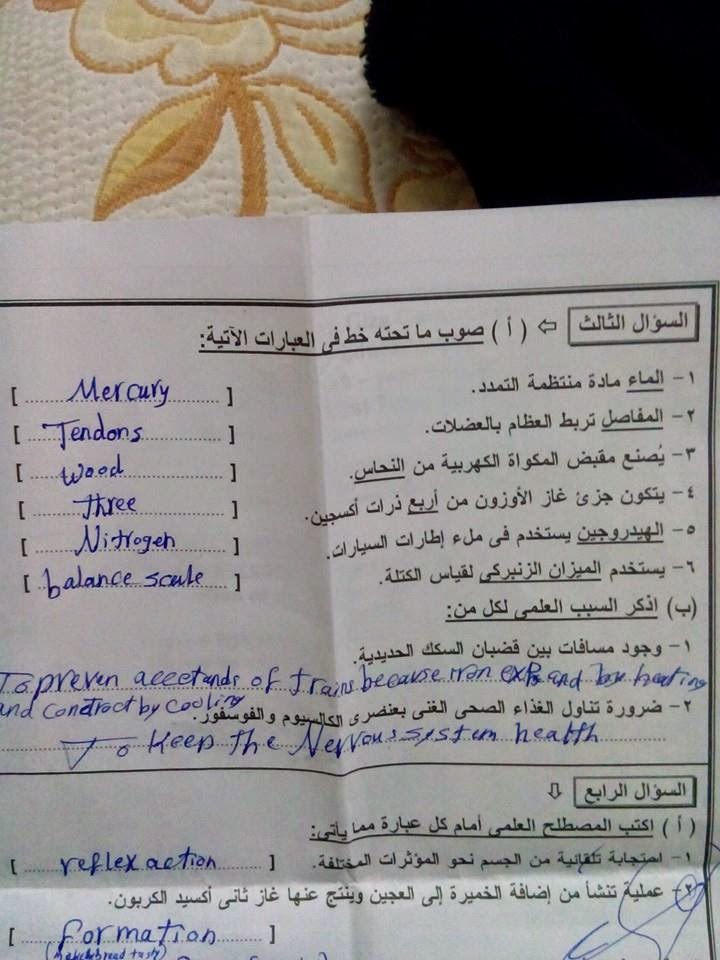 السؤال الثالث ⇦ ( أ ) صوب ما تحته خط فى العبارات الآتية:
١- الماء مادة منتظمة التمدد. [ Mercury ]
٢- المفاصل تربط العظام بالعضلات. [ Tendons ]
٣- يُصنع مقبض المكواة الكهربية من النحاس. [ wood ]
٤- يتكون جزئ غاز الأوزون من أربع ذرات أكسجين. [ three ]
٥- الهيدروجين يستخدم فى ملء إطارات السيارات. [ Nitrogen ]
٦- يستخدم الميزان الزنبركى لقياس الكتلة. [ balance scale ]
(ب) اذكر السبب العلمى لكل من:
١- وجود مسافات بين قضبان السكك الحديدية.
To preven accetands of trains because iron expand by heating
and constract by cooling
٢- ضرورة تناول الغذاء الصحى الغنى بعنصرى الكالسيوم والفوسفور.
To Keep the Nervous system health
السؤال الرابع ⇩
( أ ) اكتب المصطلح العلمى أمام كل عبارة مما يأتى:
١- استجابة تلقائية من الجسم نحو المؤثرات المختلفة. [ reflex action ]
٢- عملية تنشأ من إضافة الخميرة إلى العجين وينتج عنها غاز ثانى أكسيد الكربون.
[ formation ]